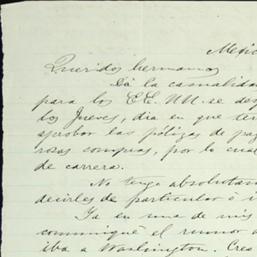 Mexic
Queridos hermanos
Dá la casualida
para los E.E. U.U. se des
los Jueves, dia en que ten
aprobar las pólizas de pag
rosas compras, por lo cua
de carrera.
No tengo absolutam
decirles de particular ó i
Ya en una de mis
comuniqué el rumor d
iba a Washington. Cres